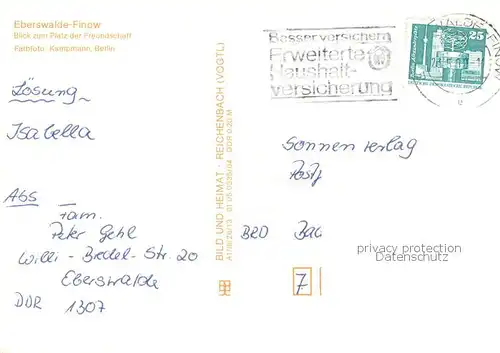 Eberswalde-Finow
Blick zum Platz der Freundschaft
Farbfoto: Kampmann, Berlin
Besser versichern
Erweiterte
Haushalt-
versicherung
25
Lösung
Isabella
Abs
Fam.
Peter Gehl
Willi - Bredel - Str. 20
Eberswalde
DDR 1307
BILD UND HEIMAT · REICHENBACH (VOGTL)
Sonnenverlag
Postf
BRD
7
privacy protection
Datenschutz